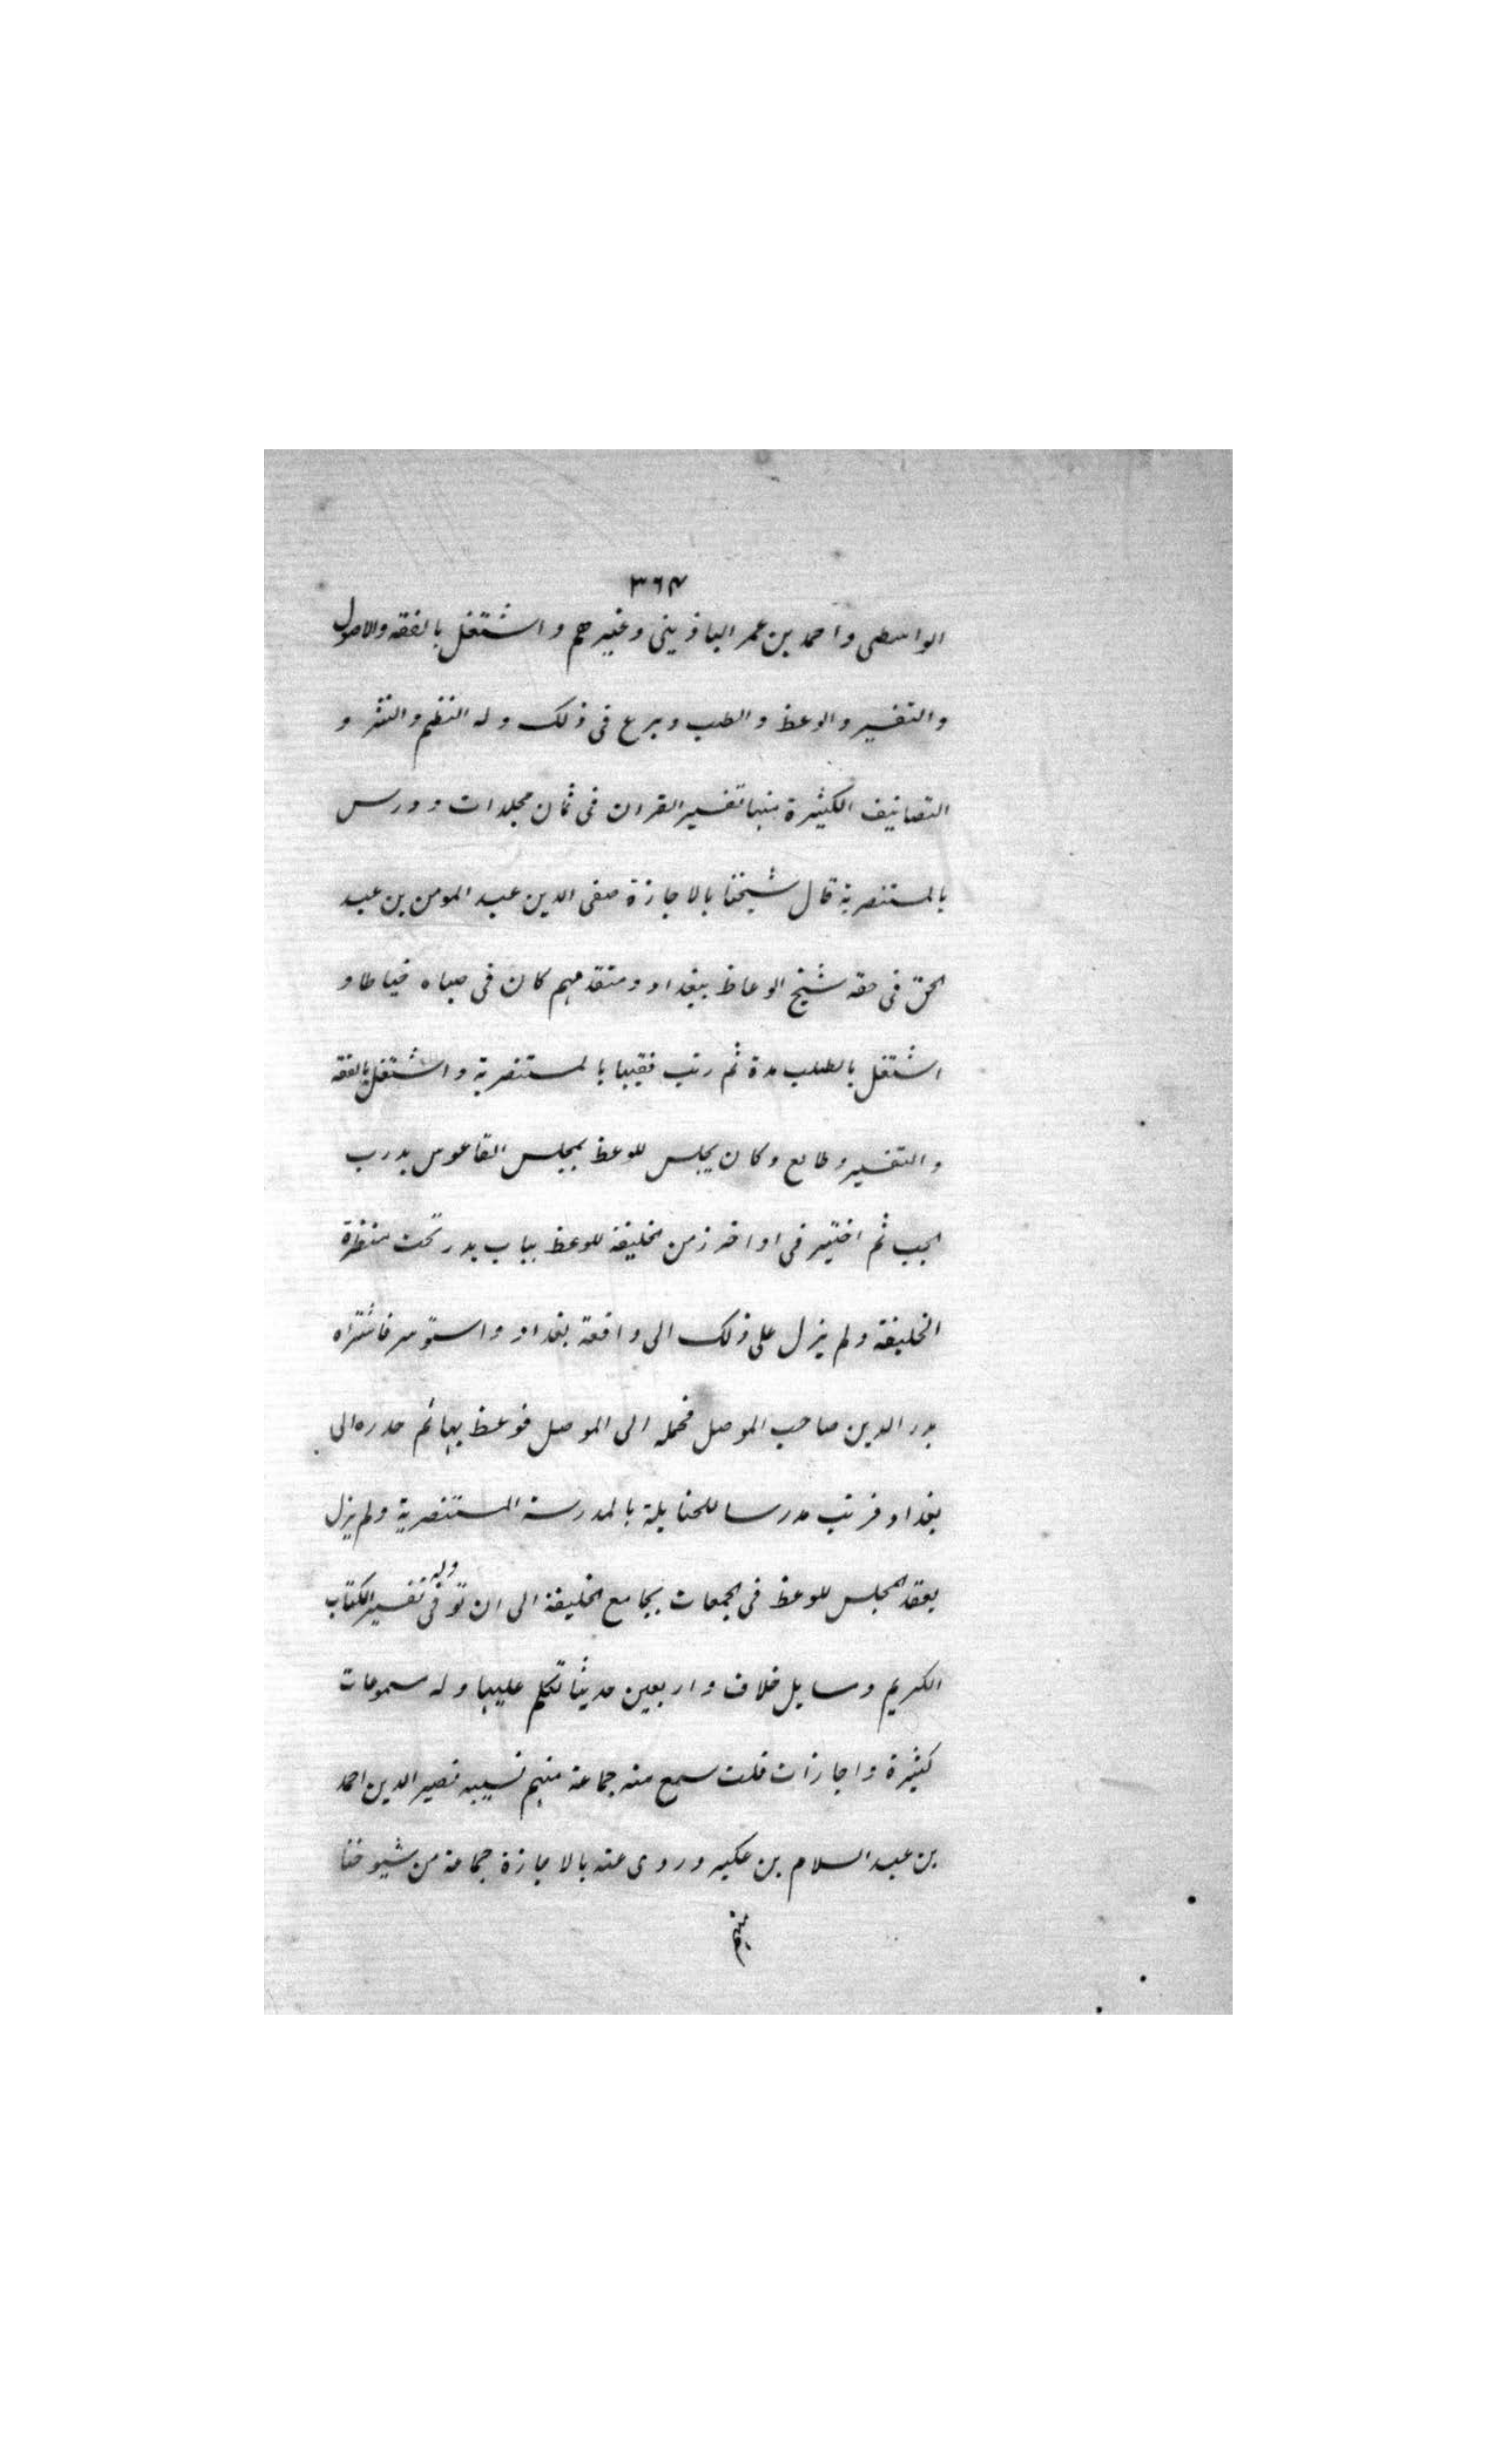 ٣٦٤
الواسطى واحمد بن عمر الباذبينى وغيرهم واشتغل بالفقه والاصول
والتفسير والوعظ والطب وبرع فى ذلك وله النظم والنثر و
التصانيف الكثيرة منها تفسير القران فى ثمان مجلدات ودرس
بالمستنصرية قال شيخنا بالاجازة صفى الدين عبد المومن بن عبد
الحق فى حقه شيخ الوعاظ ببغداد ومتقدمهم كان فى صباه خياطا و
اشتغل بالطب مدة ثم رتب فقيها بالمستنصرية واشتغل بالفقه
والتفسير وطالع وكان يجلس للوعظ بمجلس القاعوس بدرب
الجب ثم اختير فى اواخر زمن الخليفة للوعظ بباب بدر تحت منظرة
الخليفة ولم يزل على ذلك الى واقعة بغداد واستوسر فاشتراه
بدر الدين صاحب الموصل فحمله الى الموصل فوعظ بها ثم حدره الى
بغداد فرتب مدرسا للحنابلة بالمدرسة المستنصرية ولم يزل
يعقد المجلس للوعظ فى الجمعات بجامع الخليفة الى ان توفى وله تفسير الكتاب
الكريم ومسايل خلاف واربعين حديثا تكلم عليها وله مسموعات
كثيرة واجازات قلت سمع منه جماعة منهم نسيبه نصير الدين احمد
بن عبد السلام بن عكبر وروى عنه بالاجازة جماعة من شيوخنا
منهم